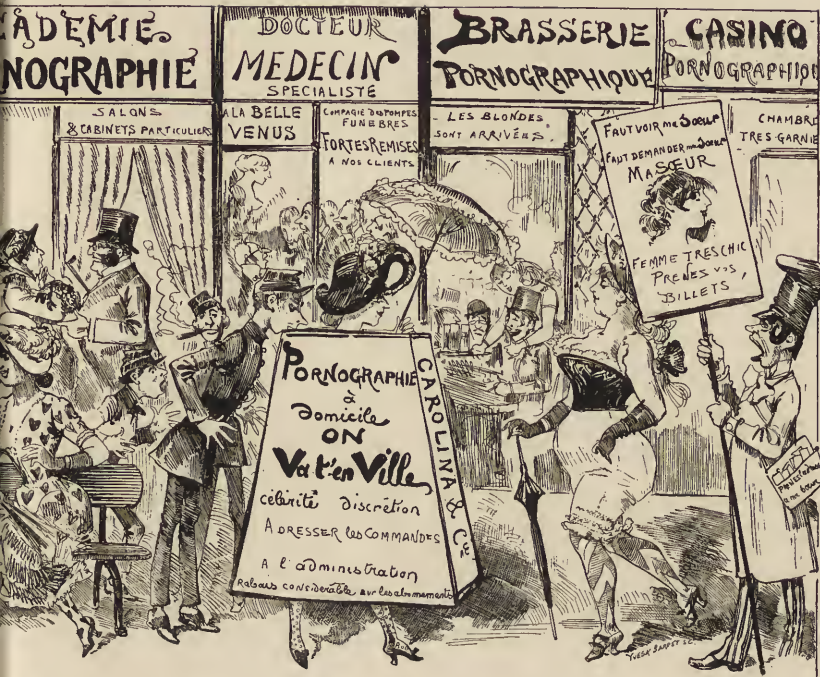 ADEMIE
NOGRAPHIE
SALONS
& CABINETS PARTICULIERS
DOCTEUR
MEDECIN
SPECIALISTE
A LA BELLE
VENUS
COMPAGIE DES POMPES
FUNEBRES
FORTES REMISES
A NOS CLIENTS
BRASSERIE
PORNOGRAPHIQUE
LES BLONDES
SONT ARRIVÉES
CASINO
PORNOGRAPHIQU
CHAMBRE
TRES GARNIE
FAUT VOIR ma Soeur
FAUT DEMANDER ma Soeur
MA SŒUR
FEMME TRES CHIC
PRENES VOS
BILLETS
PORNOGRAPHIE
à
domicile
ON
Va t'en Ville
célérité discrétion
ADRESSER les COMMANDES
A l'administration
Rabais considérable sur les abonnements
CAROLINA & Cie
YVES & BARRET SC.